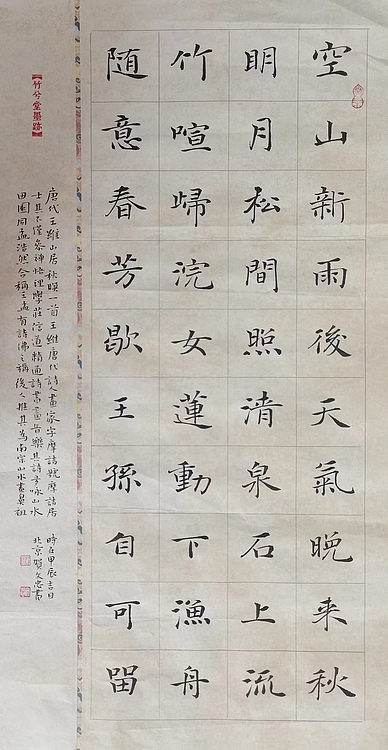 空山新雨後天氣晚来秋
明月松間照清泉石上流
竹喧歸浣女蓮動下漁舟
随意春芳歇王孫自可留
【竹兮堂墨跡】
唐代王維山居秋暝一首王維唐代詩人畫家字摩詰號摩詰居
士其不僅参禅悟理學莊信道精通詩書畫音樂其詩多咏山水
田園同孟浩然合稱王孟有詩佛之稱後人推其為南宗山水畫鼻祖
時在甲辰吉日
北京